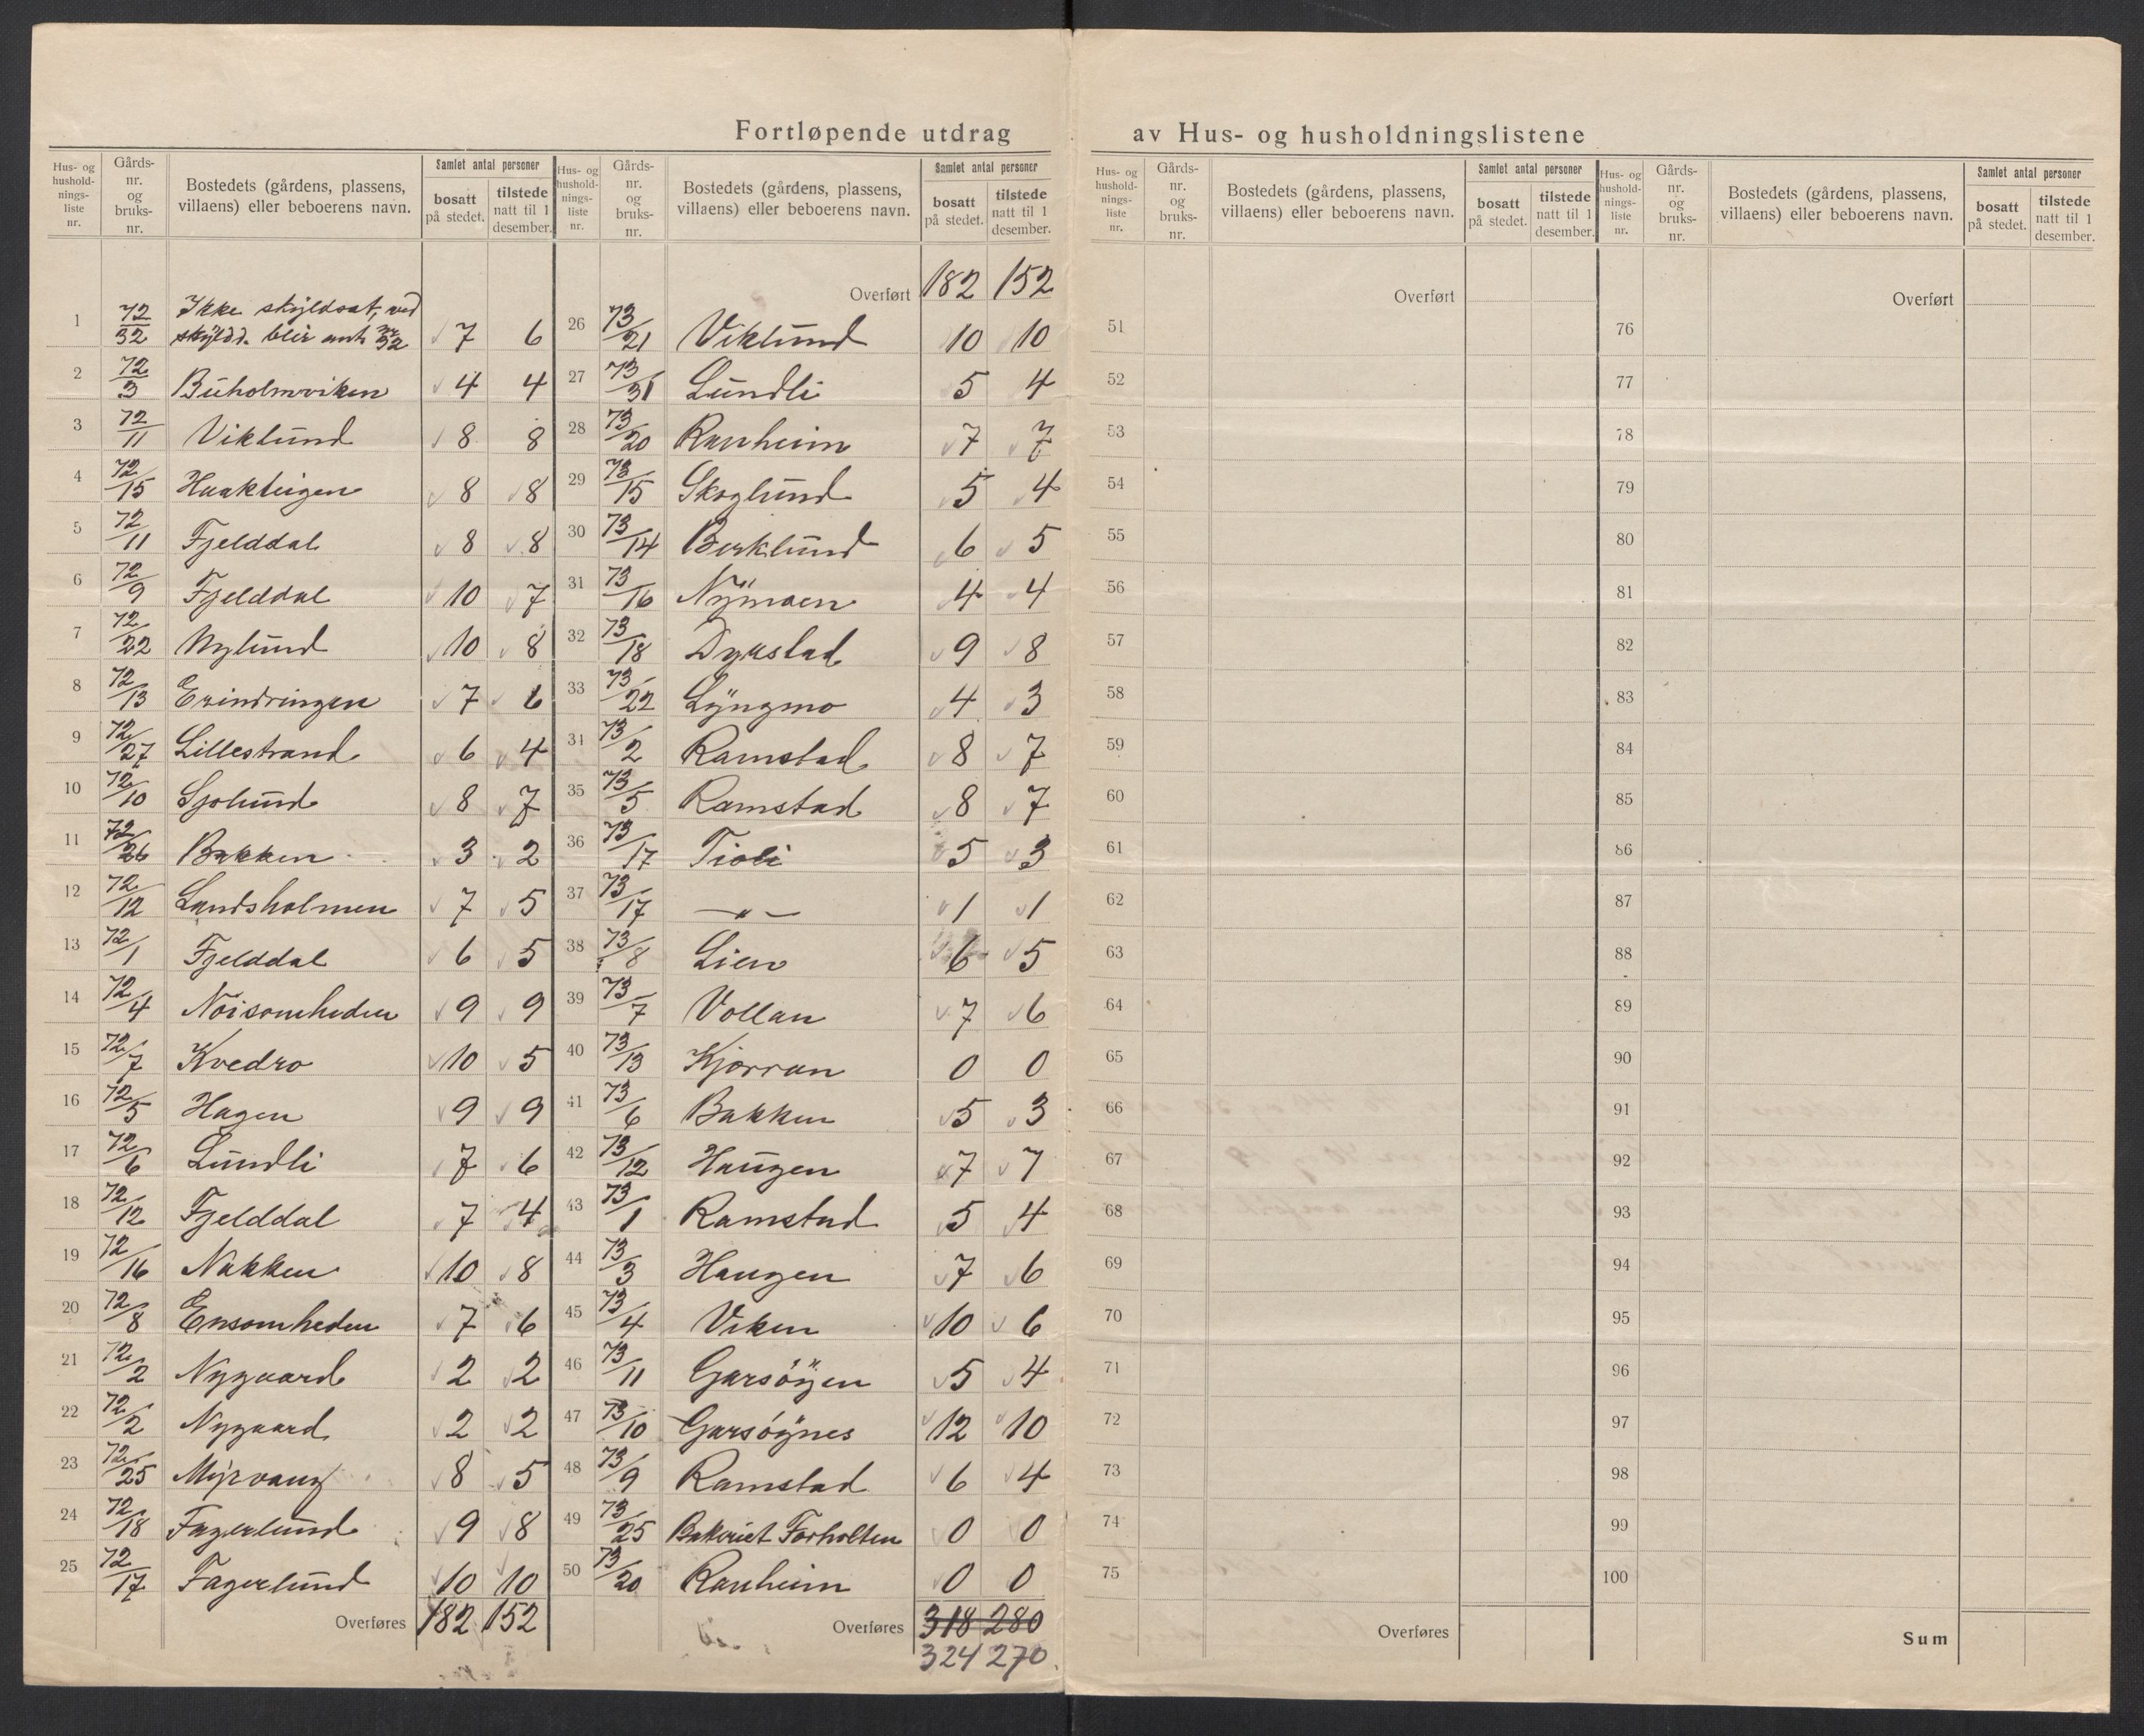 Fortløpende utdrag av Hus- og husholdningslistene
Hus- og hushold-nings-liste nr. | Gårds-nr. og bruks-nr. | Bostedets (gårdens, plassens, villaens) eller beboerens navn. | Samlet antal personer | bosatt på stedet. | tilstede natt til 1 desember.
1 72/32 Ikke skyldsat, ved skyldd. blir ant. nr 32 7 6
2 72/3 Buholmviken 4 4
3 72/11 Viklund 8 8
4 72/15 Haakteigen 8 8
5 72/11 Fjelddal 8 8
6 72/9 Fjelddal 10 7
7 72/22 Nylund 10 8
8 72/13 Erindringen 7 6
9 72/27 Lillestrand 6 4
10 72/10 Sjolund 8 7
11 72/26 Bakken 3 2
12 72/12 Landsholmen 7 5
13 72/1 Fjelddal 6 5
14 72/4 Nöisomheden 9 9
15 72/7 Kvedro 10 5
16 72/5 Hagen 9 9
17 72/6 Lundli 7 6
18 72/12 Fjelddal 7 4
19 72/16 Nakken 10 8
20 72/8 Ensomheden 7 6
21 72/2 Nygaard 2 2
22 72/2 Nygaard 2 2
23 72/25 Myrvang 8 5
24 72/18 Fagerlund 9 8
25 72/17 Fagerlund 10 10
Overføres 182 152
Hus- og hushold-nings-liste nr. | Gårds-nr. og bruks-nr. | Bostedets (gårdens, plassens, villaens) eller beboerens navn. | Samlet antal personer | bosatt på stedet. | tilstede natt til 1 desember.
Overført 182 152
26 73/21 Viklund 10 10
27 73/31 Lundli 5 4
28 73/20 Ranheim 7 7
29 73/15 Skoglund 5 4
30 73/14 Berklund 6 5
31 73/16 Nymoen 4 4
32 73/18 Dyrstad 9 8
33 73/22 Lyngmo 4 3
31 73/2 Ramstad 8 7
35 73/5 Ramstad 8 7
36 73/17 Tioli 5 3
37 73/17 —"— 1 1
38 73/8 Lien 6 5
39 73/7 Vollan 7 6
40 73/13 Kjorran 0 0
41 73/6 Bakken 5 3
42 73/12 Haugen 7 7
43 73/1 Ramstad 5 4
44 73/3 Haugen 7 6
45 73/4 Viken 10 6
46 73/11 Garsöyen 5 4
47 73/10 Garsöynes 12 10
48 73/9 Ramstad 6 4
49 73/25 Bakeriet Forholten 0 0
50 73/20 Ranheim 0 0
Overføres 318 280
324 270
Hus- og hushold-nings-liste nr. | Gårds-nr. og bruks-nr. | Bostedets (gårdens, plassens, villaens) eller beboerens navn. | Samlet antal personer | bosatt på stedet. | tilstede natt til 1 desember.
Overført
51
52
53
54
55
56
57
58
59
60
61
62
63
64
65
66
67
68
69
70
71
72
73
74
75
Overføres
Hus- og hushold-nings-liste nr. | Gårds-nr. og bruks-nr. | Bostedets (gårdens, plassens, villaens) eller beboerens navn. | Samlet antal personer | bosatt på stedet. | tilstede natt til 1 desember.
Overført
76
77
78
79
80
81
82
83
84
85
86
87
88
89
90
91
92
93
94
95
96
97
98
99
100
Sum